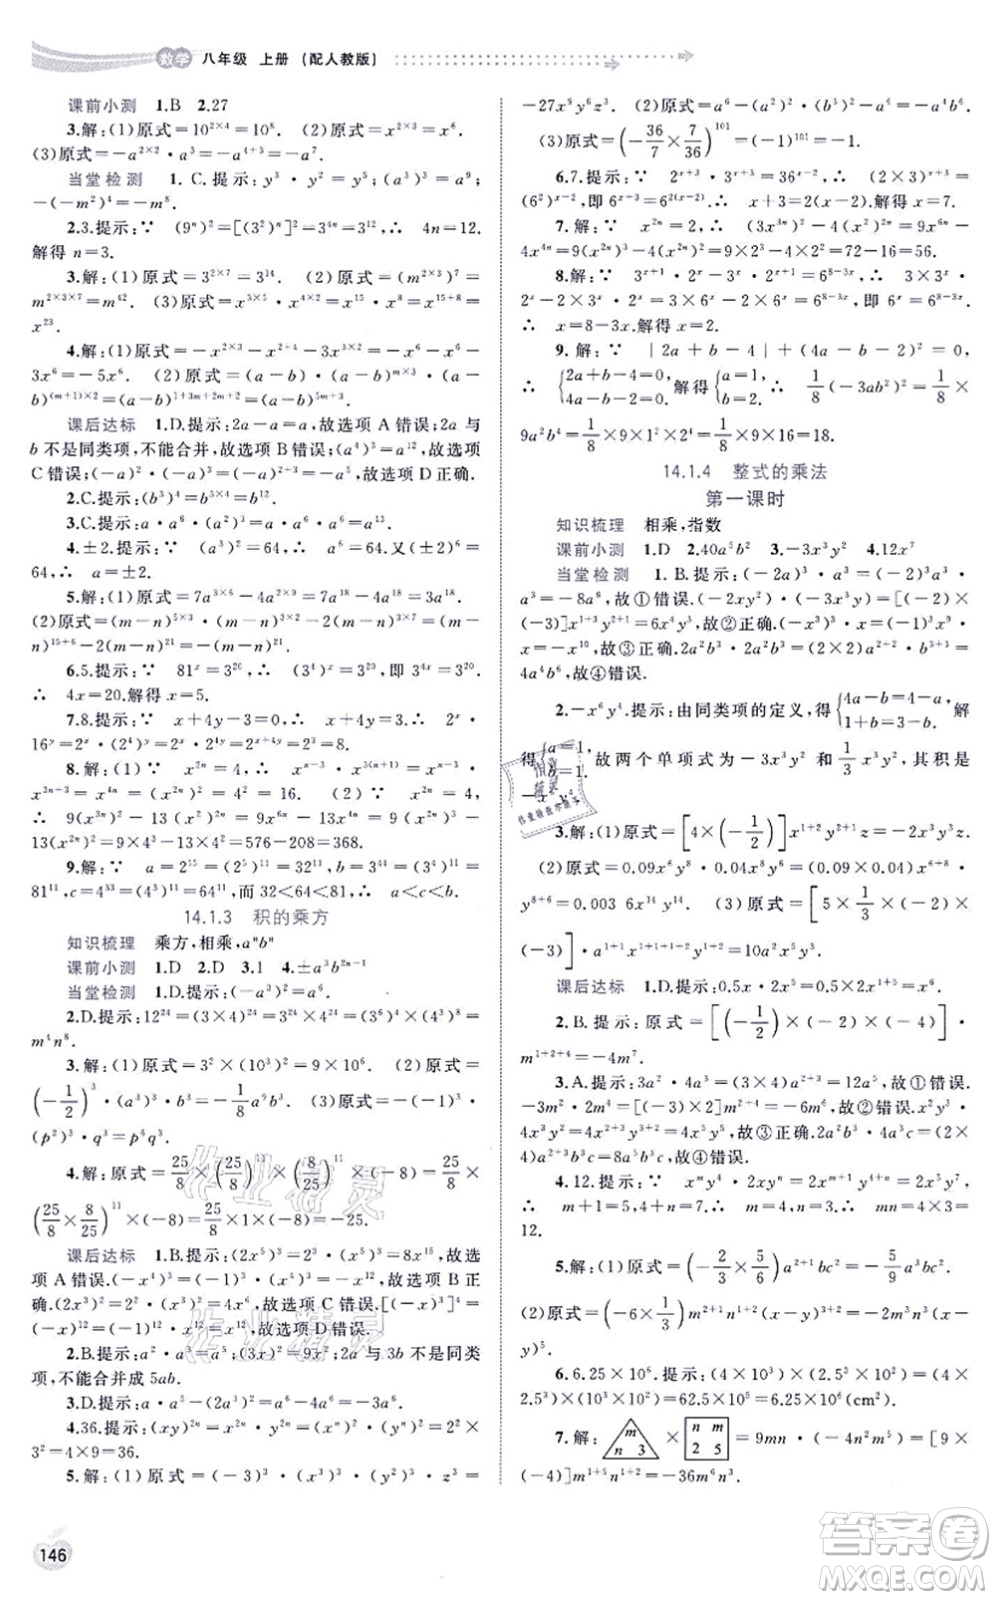 数学 八年级 上册 (配人教版)
课前小测 1.B 2.27
3.解:(1)原式=10^{2×4}=10^8. (2)原式=x^{2×3}=x^6.
(3)原式=-a^{2×2}·a^3=-a^{4+3}=-a^7.
当堂检测 1. C. 提示: y^3·y^2=y^5, (a^3)^3=a^9,
-(-m^2)^4=-m^8.
2.3.提示:∵ (9^n)^2=[(3^2)^n]^2=3^{4n},∴ 4n=12.
解得 n=3.
3.解:(1)原式=3^{2×7}=3^{14}. (2)原式=(m^{2×3})^7=
m^{2×3×7}=m^{42}. (3)原式=x^{3×5}·x^{1×8}=x^{15}·x^8=x^{15+8}=
x^{23}.
4.解:(1)原式=-x^{2×3}-x^{2+4}-3x^{1×6}=-x^6-x^6-
3x^6=-5x^6. (2)原式=(a-b)·(a-b)^{m×3}·(a-
b)^{(m+1)×2}=(a-b)^{1+3m+2m+2}=(a-b)^{5m+3}.
课后达标 1.D.提示:2a-a=a,故选项 A 错误;2a 与
b 不是同类项,不能合并,故选项 B 错误;(a^4)^3=a^{12},故选项
C 错误;(-a)^2·(-a)^4=(-a)^6=a^6,故选项 D 正确.
2.C.提示:(b^3)^4=b^{3×4}=b^{12}.
3.D.提示:a·a^6·(a^2)^3=a·a^6·a^6=a^{13}.
4.±2.提示:∵ (a^3)^2=64,∴ a^6=64.又(±2)^6=
64,∴ a=±2.
5.解:(1)原式=7a^{3×6}-6a^{2×9}=7a^{18}-6a^{18}=a^{18}.
(2)原式=(m-n)^{15}·(m-n)^6-2(m-n)^{21}=(m-
n)^{15+6}-2(m-n)^{21}=-(m-n)^{21}.
6.5.提示:∵ 81^x=3^{20},∴ (3^4)^x=3^{20},即 3^{4x}=3^{20}.
∴ 4x=20.解得 x=5.
7.8.提示:∵ x+4y-3=0,∴ x+4y=3.∴ 2^x·
16^y=2^x·(2^4)^y=2^x·2^{4y}=2^{x+4y}=2^3=8.
8.解:∵ x^{2n}=4,∴ x^{n-1}·x^{3(n+1)}=x^{4n+2}.
∴ 9(x^{3n})^2-13(x^2)^{2n}=9x^{6n}-13x^{4n}=9(x^{2n})^3-
13(x^{2n})^2=9×4^3-13×4^2=576-208=368.
9.解:∵ a=2^{55}=(2^5)^{11}=32^{11},b=3^{44}=(3^4)^{11}=
81^{11},c=4^{33}=(4^3)^{11}=64^{11},而 32<64<81,∴ a<c<b.
14.1.3 积的乘方
知识梳理 乘方,相乘,a^nb^n
课前小测 1.D 2.D 3.1 4.±a^3b^{2n-1}
当堂检测 1.D.提示:(-a^3)^2=a^6.
2.D.提示:12^{24}=(3×4)^{24}=3^{24}×4^{24}=(3^6)^4·(4^8)^3=
m^4n^8.
3.解:(1)原式=3^2×(10^3)^2=9×10^6. (2)原式=
(-1/2)^3·(a^3)^3·b^3=-1/8a^9b^3. (3)原式=(-1)^3·
(p^2)^3·q^3=-p^6q^3.
4.解:原式=25/8×(25/8)^{11}×(8/25)^{11}×(-8)=25/8×
(25/8×8/25)^{11}×(-8)=25/8×(-8)=-25.
课后达标 1.B.提示:(2x^5)^3=2^3·(x^5)^3=8x^{15},故选
项 A 错误.(-x^4)^3=(-1)^3·(x^4)^3=-x^{12},故选项 B 正
确.(2x^3)^2=2^2·(x^3)^2=4x^6,故选项 C 错误.[(-x)^3]^4=
(-1)^{12}·x^{12}=x^{12},故选项 D 错误.
2.B.提示:a^2·a^2=a^4,(3x)^2=9x^2.2a 与 3b 不是同类
项,不能合并成 5ab.
3.D.提示:a^6-(2a^3)^2=a^6-4a^6=-3a^6.
4.36.提示:(xy)^{2n}=x^{2n}·y^{2n}=(x^n)^2·(y^n)^2=2^2×
3^2=4×9=36.
5.解:(1)原式=(-3)^3·(x^3)^3·(y^2)^3·z^3=
-27x^9y^6z^3. (2)原式=-(a^2)^2·(b^3)^2=-a^4b^6.
(3)原式=(-36/7×7/36)^{101}=(-1)^{101}=-1.
6.7.提示:∵ 2^{x+3}·3^{x+3}=36^{x-2},∴ (2×3)^{x+3}=
(6^2)^{x-2},即 6^{x+3}=6^{2(x-2)}.∴ x+3=2(x-2).解得 x=7.
7.解:∵ x^{2n}=2,∴ (3x^{3n})^2-4(x^2)^{2n}=9x^{6n}-
4x^{4n}=9(x^{2n})^3-4(x^{2n})^2=9×2^3-4×2^2=72-16=56.
8.解:∵ 3^{x+1}·2^x-3^x·2^{x+1}=6^{8-3x},∴ 3×3^x·
2^x-2×3^x·2^x=3×6^x-2×6^x=6^{8-3x},即 6^x=6^{8-3x}.
∴ x=8-3x.解得 x=2.
9. 解:∵ |2a+b-4|+(4a-b-2)^2=0,
∴ {2a+b-4=0, 4a-b-2=0. 解得{a=1, b=2. ∴ 1/8(-3ab^2)^2=1/8×
9a^2b^4=1/8×9×1^2×2^4=1/8×9×16=18.
14.1.4 整式的乘法
第一课时
知识梳理 相乘,指数
课前小测 1.D 2.40a^5b^2 3.-3x^3y^2 4.12x^7
当堂检测 1. B. 提示:(-2a)^3·a^3=(-2)^3a^3·
a^3=-8a^6,故①错误.(-xy^2)·(-2x^3y)=[(-1)×
(-3)]x^{1+3}y^{2+1}=6x^4y^3,故②正确.(-x^3)^3·x=-x^9·
x=-x^{10},故③错误.2a^2b·2a^4b^3=(2×2)a^{2+4}·b^{1+3}=
4a^6b^4,故④错误.
2.-x^6y^4.提示:由同类项的定义,得{4a-b=4-a, 1+b=3-a. 解
得{a=1, b=1. 故两个单项式为-3x^3y^2和1/3x^3y^2,故其积是
-x^6y^4.
3.解:(1)原式=[4×(-1/2)]x^{1+2}y^2z=-2x^3y^2z.
(2)原式=0.09x^4y^8·0.04x^8y^6=(0.09×0.04)x^{4+8}·
y^{8+6}=0.003 6x^{12}y^{14}. (3)原式=[5×1/3×
(-3)]·a^{1+1}x^{1+1+1+2}y^{1+1}=-5a^2x^5y^2.
课后达标 1.D.提示:0.5x·2x^4=0.5×2x^{1+4}=x^5.
2.B.提示:原式=[(-1/2)×(-2)×(-4)]·
m^{1+2+4}=-4m^7.
3.A.提示:3a^2·4a^2=(3×4)a^{2+2}=12a^4,故①错误.
-3m^2·2m^4=[(-3)×2]m^{2+4}=-6m^6,故②错误.x^2y^3·
xy^2=x^{2+1}y^{3+2}=x^3y^5,故③正确.2a^3·a^3=2a^{3+3}=2a^6,故④错误.
4.12.提示:∵ x^my^n·2xy^n=2x^{m+1}y^{2n}=2x^5y^6,
∴ m+1=5,2n=6.∴ m=4,n=3.∴ mn=4×3=
12.
5.解:(1)原式=(-2/3×5/6)a^{1+2}bc=-5/9a^3bc.
(2)原式=(-6×1/3)m^{2+1}n^{1+2}(x-y)^{3+2}=-2m^3n^3(x-
y)^5.
6.6.25×10^6.提示:(2.5×10^3)×(2.5×10^3)=(2.5×
2.5)×(10^3×10^3)=6.25×10^6(cm^2)
7.解:m n 3 × n m 2 5 =9mn·(-4n^2m^5)=[9×
(-4)]m^{1+5}n^{1+2}=-36m^6n^3.
146
答案圈
MXQE.COM
作业精灵
作业精灵